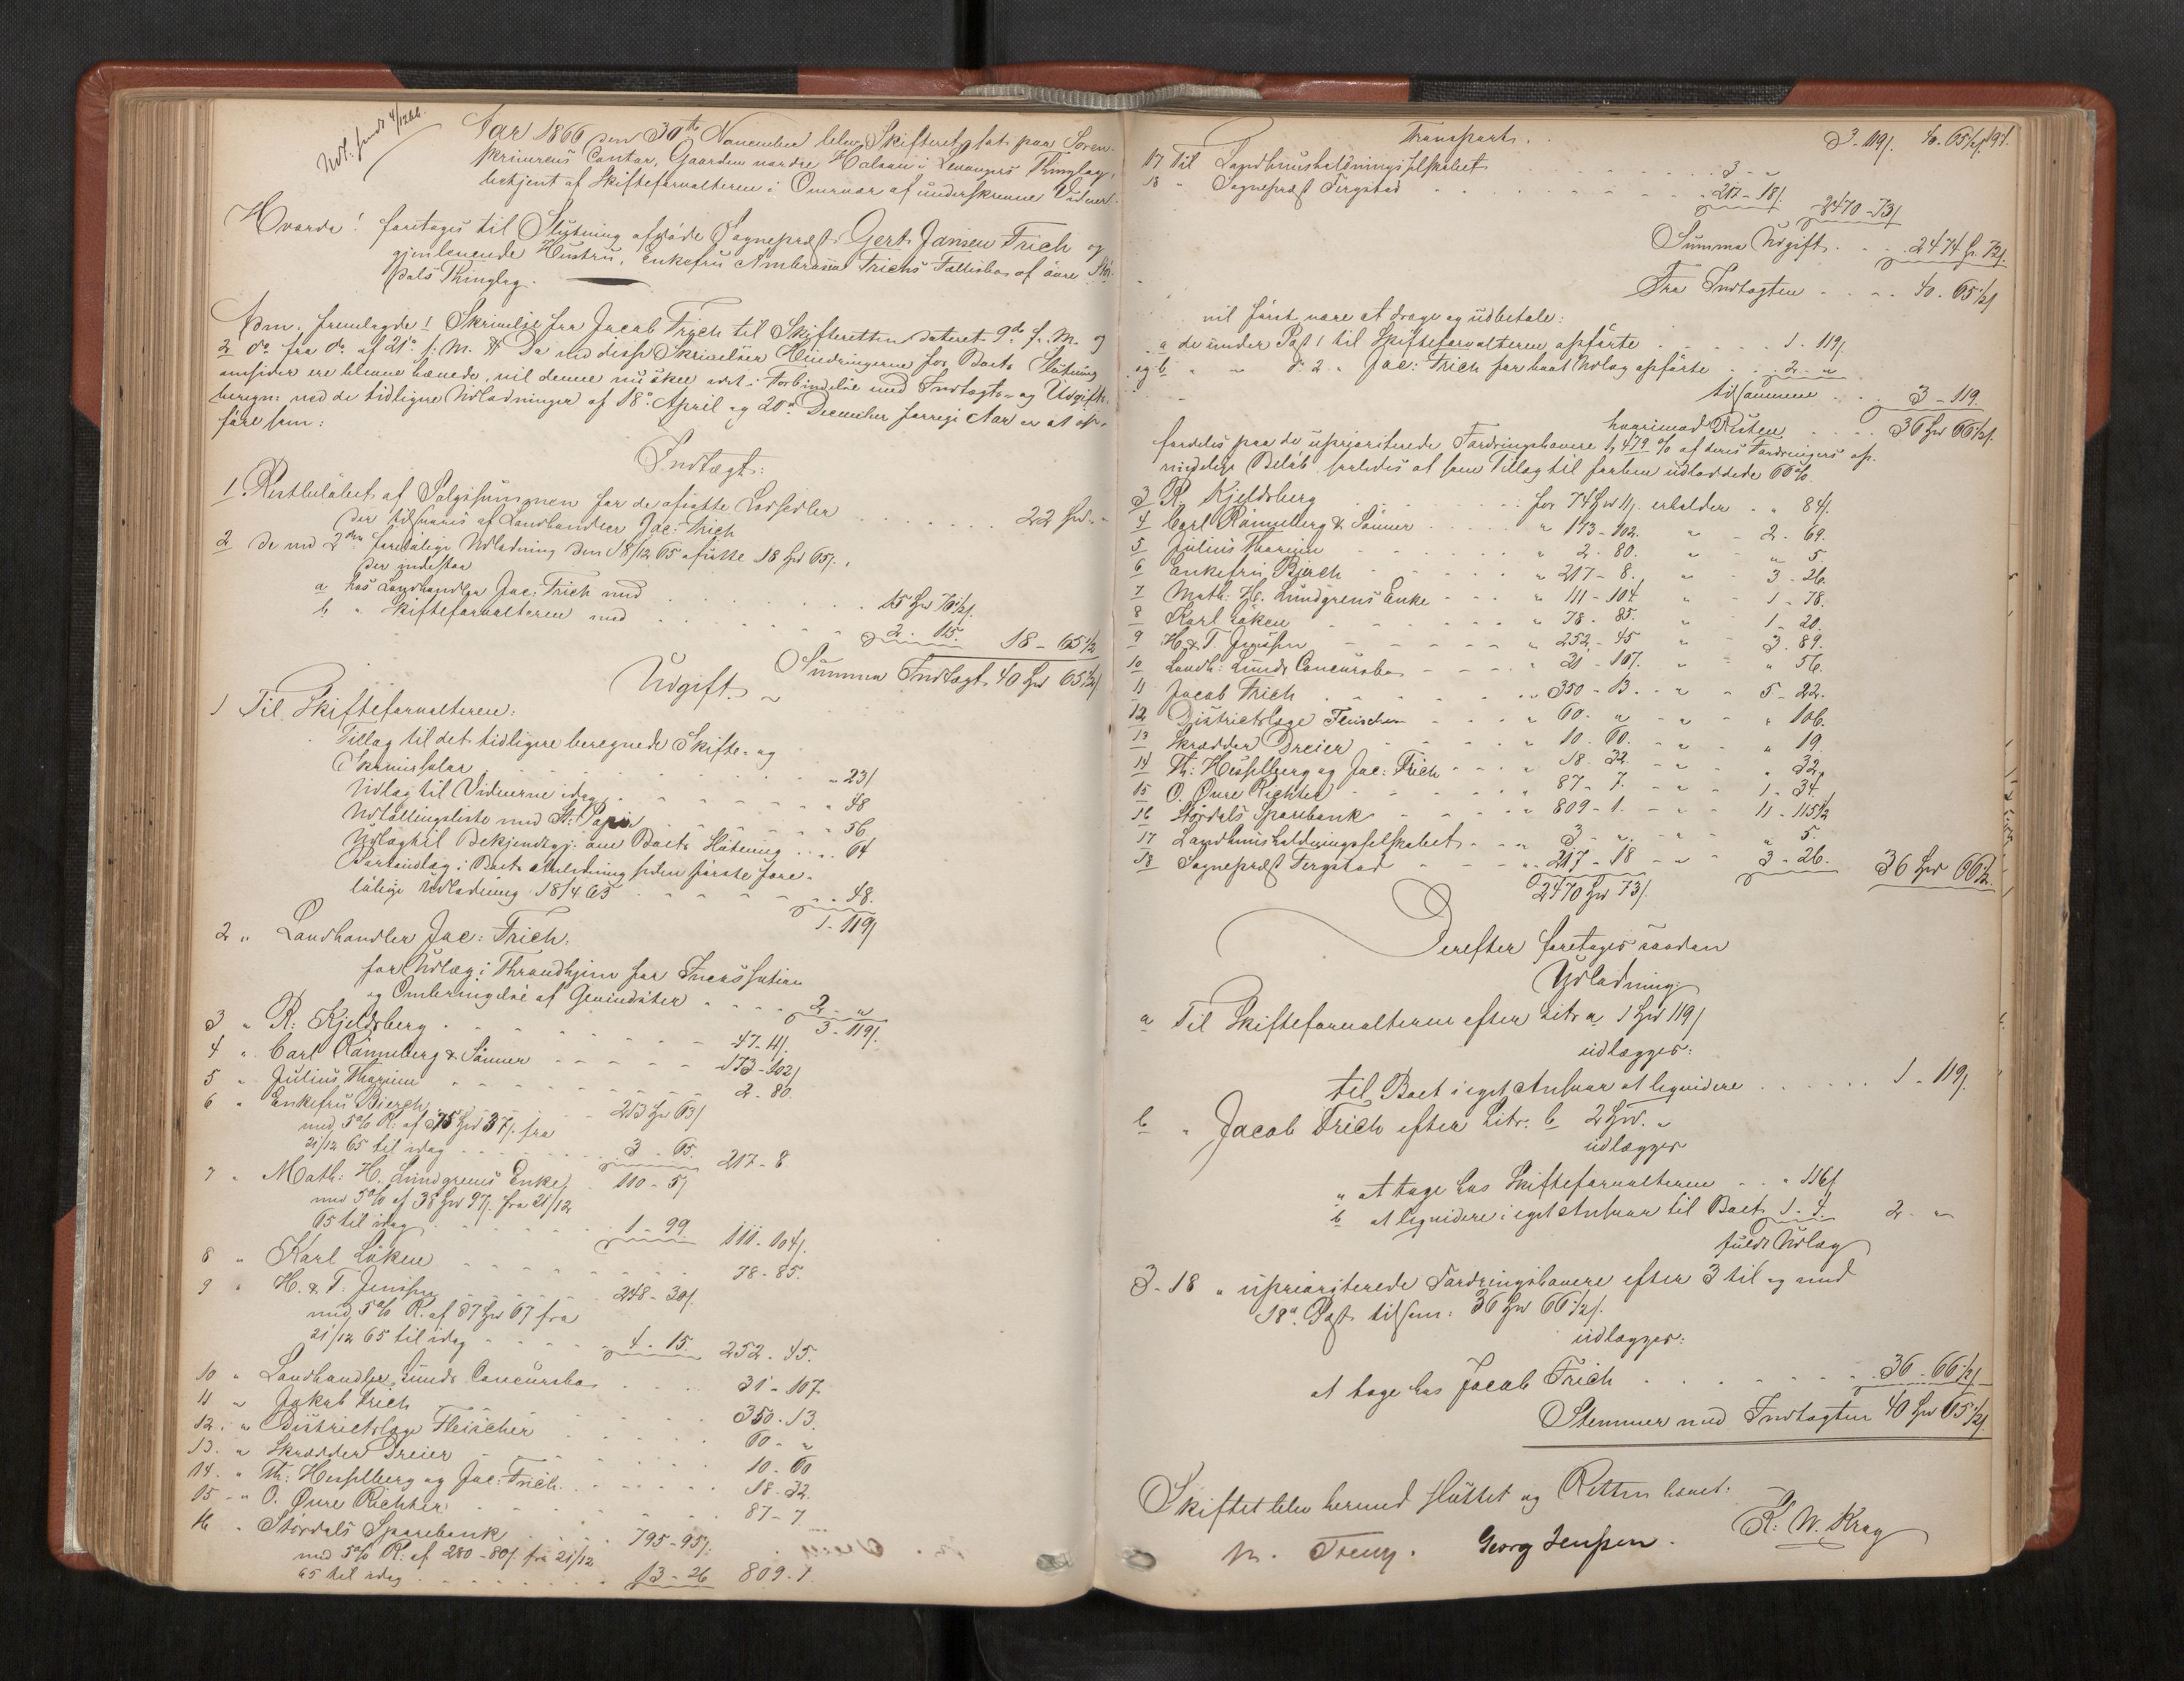 Aar 1866 den 30th November blev Skifteret sat paa Soren-
skriverens Contor, Gaarden nordre Halsan i Levangers Thinglag,
betjent af Skifteforvalteren i Overvær af underskrevne Vidner.
Hvorda! foretages til Slutning afdøde Sognepræst Gert Jansen Frich og
gjenlevende Hustru, Enkefru Ambrosia Frichs Fællisbo af øvre Stör-
dals Thinglag.
Adm. fremlagde 1 Skrivelse fra Jacob Frich til Skifteretten dateret 9de f. M. og
2 do fra do af 21de f. M. Da ved disse Skrivelser Hindringerne for Boets Slutning
omsider ere blevne hævede, vil denne nu skee idet i Forbindelse med Indtægts- og Udgifts
beregn: ved de tidligere Udlodninger af 18de April og 20de December forrige Aar er at op-
føre som:
Indtægt:
1 Restbeløbet af Salgssummen for de afsatte Lodsedler
der tilsvares af Landhandler Jac: Frich . . . . . . 22 Spd -
2 De ved 2den foreløbige Udlodning den 18/12 65 afsatte 18 Spd 65 ß,
der indestaa
a hos Landhandler Jac: Frich med . . . . . 15 Spd 70½ ß
b " Skifteforvalteren med . . . . . 2 - 115. 18 - 65½
Summa Indtægt 40 Spd 65½ ß
Udgift
1 Til Skifteforvalteren:
Tillæg til det tidligere beregnede Skifte- og
Skriversalar . . . . . " 23 ß
Udlæg til Vidnerne idag . . . . . " 48
Udtællingsliste med St: Papir . . . . . " 56
Udlæg til Bekjendtgj. om Boets Slutning . . . . 64
Portoudlæg i Boets Anledning siden første fore-
løbige Udlodning 18/4 65 . . . . . " 48.
1 - 119 ß
2 " Landhandler Jac: Frich.
for Udlæg i Throndhjem for
og Ombringelse af . . . . 2 - "
3 - 119 ß.
3 " R: Kjeldsberg . . . . . 47 - 11 ß.
4 " Carl Rönneberg & Sönner . . . . 173 - 102 ß
5 " Julius Thorium . . . . . 2 - 80.
6 " Enkefru Bjerch . . . . 213 Spd 63 ß
med 5% R: af 75 Spd 37 ß. fra
21/12 65 til idag . . . . . 3 - 65. 217 - 8
7 " Math: H. Lundgrens Enke . 110 - 5 ß
med 5% af 38 Spd 97 ß. fra 21/12
65 til idag . . . . . 1 - 99. 111 - 104 ß.
8 " Karl Löken . . . . . 78 - 85.
9 " H. & T. Jenssen . . . . . 248 - 30 ß.
med 5% R. af 87 Spd 67 fra
21/12 65 til idag . . . . 4 - 15. 252 - 45.
10 " Landhandler Lunds Concursbo . . . 31 - 107.
11 " Jakob Frich . . . . . 350 - 13.
12. " Districtslæge Fleischer . . . . . 60 - "
13. " Skrædder Dreier . . . . . 10 - 60
14. " Th: Hesselberg og Jac: Frich . . . . . 18 - 32.
15 - " O. Øvre Richter . . . . . 87 - 7
16 " Stördals Sparebank . . . . 795 - 95 ß.
med 5% R: af 280 - 80 ß. fra 21/12
65 til idag . . . . . 13 - 26 809 - 1.
Transport . . 3 - 119 ß. 40 - 65½ ß 191.
17 Til Landhuusholdningsselskabet . . . . . 3 - "
18 " Sognepræst Tergstad . . . . . 217 - 18 ß.
2470 - 73 ß
Summa Udgift . . . 2474 Sp. 72 ß.
Fra Indtægten . . . . 40 - 65½ ß
vil först være at drage og udbetale:
a de under Post 1 til Skifteforvalteren opförte . . . . . 1 - 119 ß.
og b " " do 2 " Jac: Frich for havt Udlæg opförte . . . 2 - "
tilsammen . . . 3 - 119.
hvorimod Resten . . . . 36 Spd 66½ ß.
fordeles paa de uprioriterede Fordringshavere 1,479 % af deres Fordringers op-
rindelige Beløb saaledes at som Tillæg til forhen udloddede 60%.
3 R. Kjeldsberg . . . . . for 74 Spd 11 ß. erholder . " 84 ß.
4 Carl Rönneberg & Sönner . . . . " 173 - 102. " - 2 - 69.
5 Julius Thorium . . . . " 2 - 80. " - " 5
6 Enkefru Bjerch . . . . " 217 - 8. " - 3 - 26.
7 Math: H. Lundgrens Enke . . . " 111 - 104. " - 1 - 78.
8 Karl Löken . . . . " 78 - 85. " - 1 - 20.
9 H. & T. Jenssen . . . . " 252 - 45 " - 3 - 89.
10 Landh: Lunds Concursbo . . . . " 31 - 107. " - " 56.
11 Jacob Frich . . . . . " 350 - 13. . " - 5 - 22.
12 Districtslæge Fleischer . . . . " 60 - " - " - " 106.
13 Skrædder Dreier . . . . " 10 - 60. - " - " 19.
14 Th: Hesselberg og Jac: Frich . . . " 18 - 32. - " - " 32.
15 O. Øvre Richter . . . . . " 87 - 7. - " - 1 - 34.
16 Stördals Sparebank . . . . " 809 - 1. - " - 11 - 115½
17 Landhuusholdningsselskabet . . . " 3 - " . - " - " 5.
18 Sognepræst Tergstad . . . . " 217 - 18 - " - 3 - 26. 36 Spd 66½.
2470 Spd 73 ß.
Derefter foretages saadan
Udlodning:
a Til Skifteforvalteren efter Litr a 1 Spd 119 ß
udlægges:
til Boet i eget Ansvar at liquidere . . . . . . 1 - 119 ß.
b " Jacob Frich efter Litr. b 2 Spd. "
udlægges
a at tage hos Skifteforvalteren . . " 116 ß
b at liquidere i eget Ansvar til Boet 1 - 4. 2 - "
fuldt Udlæg
3-18 " uprioriterede Fordringshavere efter 3 til og med
18de Post tilsam: 36 Spd 66½ ß.
udlægges:
at tage hos Jacob Frich . . . . . . 36 - 66½ ß
Stemmer med Indtægten 40 Spd 65½ ß
Skiftet blev hermed sluttet og Retten hævet.
K: W. Krag
Georg Jenssen.